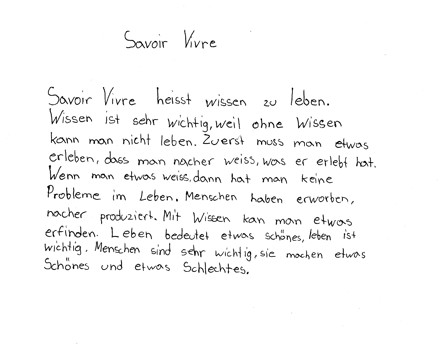 Savoir Vivre
Savoir Vivre heisst wissen zu leben.
Wissen ist sehr wichtig, weil ohne Wissen
kann man nicht leben. Zuerst muss man etwas
erleben, dass man nacher weiss, was er erlebt hat.
Wenn man etwas weiss, dann hat man keine
Probleme im Leben. Menschen haben erworben,
nacher produziert. Mit Wissen kan man etwas
erfinden. Leben bedeutet etwas schönes, leben ist
wichtig. Menschen sind sehr wichtig, sie machen etwas
Schönes und etwas Schlechtes.